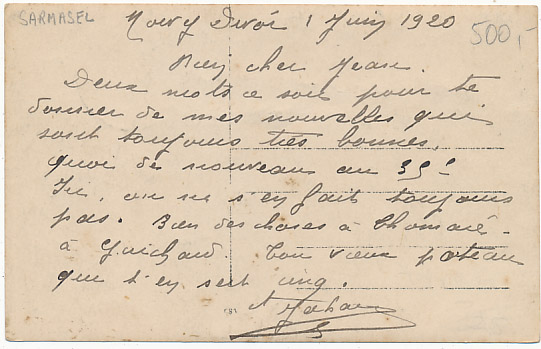 SARMASEL
1 Juin 1920
500,-
Bien cher Jean.
Deux mots ce soir pour te
donner de mes nouvelles qui
sont toujours très bonnes.
quoi de nouveau au 39e
Ici, on ne s'en fait toujours
pas. Bien des choses à Thomaré -
à Guichard. Ton vieux poteau
qui t'en sert cinq.